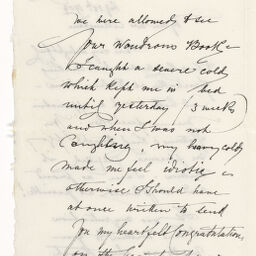 we were allowed to see
your wondrous Book —
I caught a severe cold
which kept me in bed
until yesterday (3 weeks)
and when I was not
coughing, my heavy cold
made me feel idiotic —
otherwise I should have
at once written to send
you my heartfelt congratulations,
on the